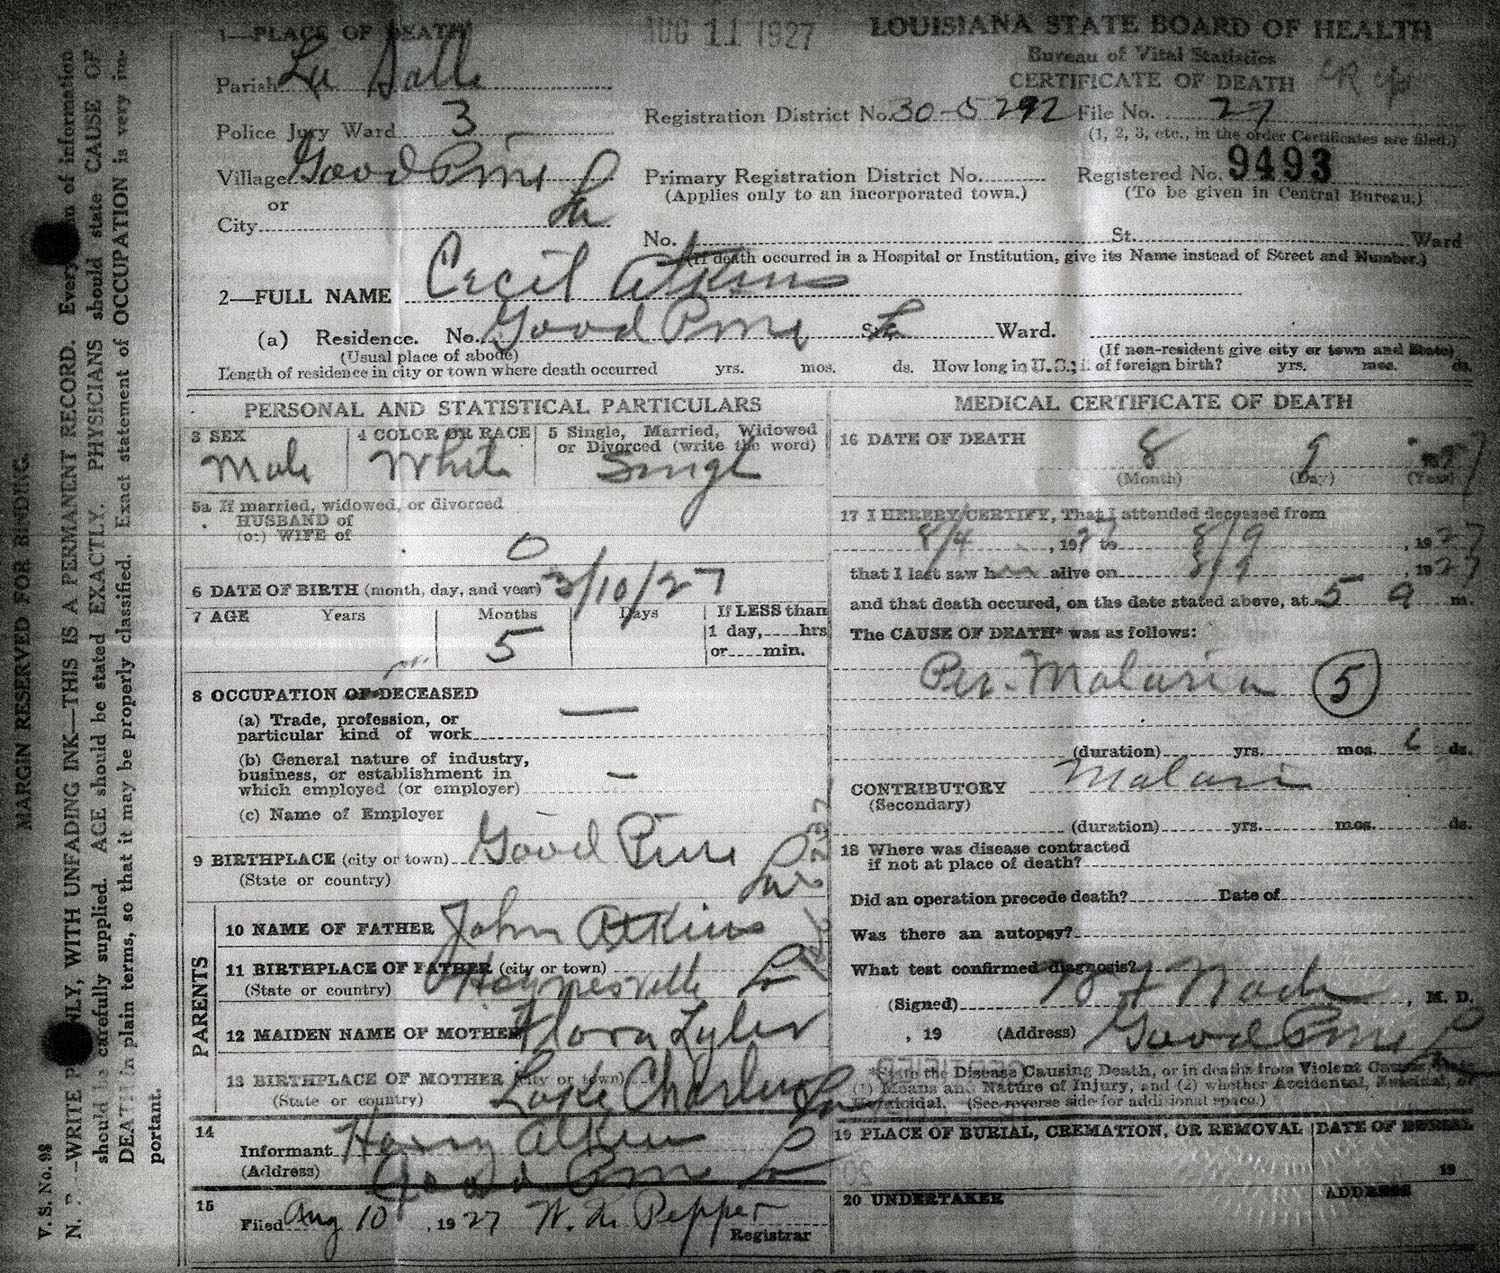 AUG 11 1927
LOUISIANA STATE BOARD OF HEALTH
Bureau of Vital Statistics
CERTIFICATE OF DEATH
1—PLACE OF DEATH
Parish La Salle
Police Jury Ward 3
Village Good Pine La
or
City
Registration District No. 30-5292 File No. 27
(1, 2, 3, etc., in the order Certificates are filed.)
Primary Registration District No. Registered No. 9493
(Applies only to an incorporated town.) (To be given in Central Bureau.)
No. St. Ward
(If death occurred in a Hospital or Institution, give its Name instead of Street and Number.)
2—FULL NAME Cecil Atkins
(a) Residence. No. Good Pine St. La Ward.
(Usual place of abode) (If non-resident give city or town and State)
Length of residence in city or town where death occurred yrs. mos. ds. How long in U.S., if of foreign birth? yrs. mos. ds.
PERSONAL AND STATISTICAL PARTICULARS
3 SEX Male
4 COLOR OR RACE White
5 Single, Married, Widowed
or Divorced (write the word)
Singl
5a If married, widowed, or divorced
HUSBAND of
(or) WIFE of
0
6 DATE OF BIRTH (month, day, and year) 3/10/27
7 AGE Years Months Days If LESS than
5 1 day, hrs
or min.
8 OCCUPATION OF DECEASED
(a) Trade, profession, or
particular kind of work —
(b) General nature of industry,
business, or establishment in
which employed (or employer) —
(c) Name of Employer
9 BIRTHPLACE (city or town) Good Pine
(State or country) La
PARENTS
10 NAME OF FATHER John Atkins
11 BIRTHPLACE OF FATHER (city or town)
(State or country) Haynesville La
12 MAIDEN NAME OF MOTHER Flora Lyles
13 BIRTHPLACE OF MOTHER (city or town)
(State or country) Lake Charles La
14
Informant Harry Atkins
(Address) Good Pine La
15
Filed Aug 10, 1927 Pepper
Registrar
MEDICAL CERTIFICATE OF DEATH
16 DATE OF DEATH 8 9
(Month) (Day) (Year)
17 I HEREBY CERTIFY, That I attended deceased from
8/4, 1927 to 8/9, 1927
that I last saw h alive on 8/9, 1927
and that death occured, on the date stated above, at 5 a m.
The CAUSE OF DEATH* was as follows:
Per. Malaria 5
(duration) yrs. mos. ds.
CONTRIBUTORY Malari
(Secondary)
(duration) yrs. mos. ds.
18 Where was disease contracted
if not at place of death?
Did an operation precede death? Date of
Was there an autopsy?
What test confirmed diagnosis?
(Signed) , M. D.
, 19 (Address) Good Pine L
*State the Disease Causing Death, or in deaths from Violent Causes, state
(1) Means and Nature of Injury, and (2) whether Accidental, Suicidal, or
Homicidal. (See reverse side for additional space.)
19 PLACE OF BURIAL, CREMATION, OR REMOVAL DATE OF BURIAL
19
20 UNDERTAKER ADDRESS
MARGIN RESERVED FOR BINDING.
V. S. No. 98
N. B.—WRITE PLAINLY, WITH UNFADING INK—THIS IS A PERMANENT RECORD. Every item of information
should be carefully supplied. AGE should be stated EXACTLY. PHYSICIANS should state CAUSE OF
DEATH in plain terms, so that it may be properly classified. Exact statement of OCCUPATION is very im-
portant.